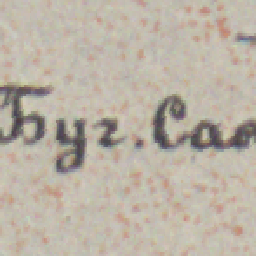 Буг. Сав